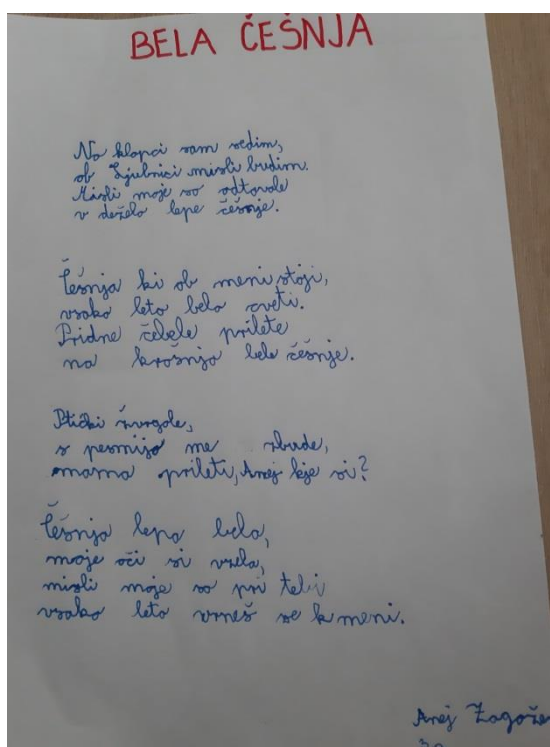 BELA ČEŠNJA
Na klopci sam sedim,
ob Ljubnici misli budim.
Misli moje so odtavale
v deželo lepe češnje.
Češnja ki ob meni stoji,
vsako leto belo cveti.
Pridne čebele prilete
na krošnjo bele češnje.
Ptički žvrgole,
s pesmijo me zbude,
mama prileti, Anej kje si?
Češnja lepa bela,
moje oči si vzela,
misli moje so pri tebi
vsako leto vrneš se k meni.
Anej Zagože